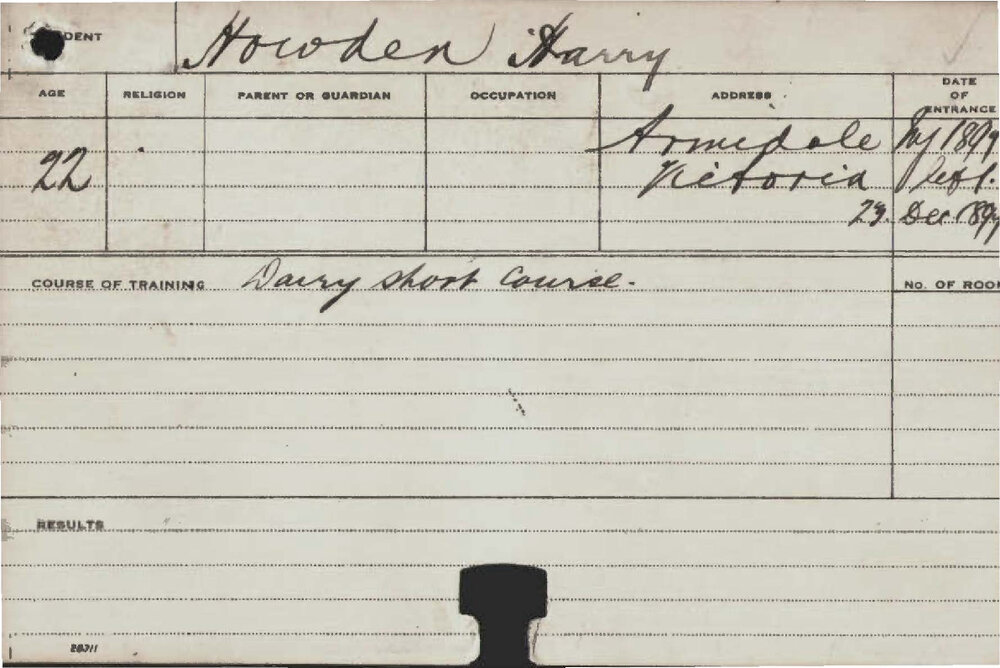 DENT Howden Harry
AGE RELIGION PARENT OR GUARDIAN OCCUPATION ADDRESS DATE OF ENTRANCE
Armidale 1899
22 Victoria Sept.
29. Dec 1899
COURSE OF TRAINING Dairy short course. No. OF ROO
RESULTS